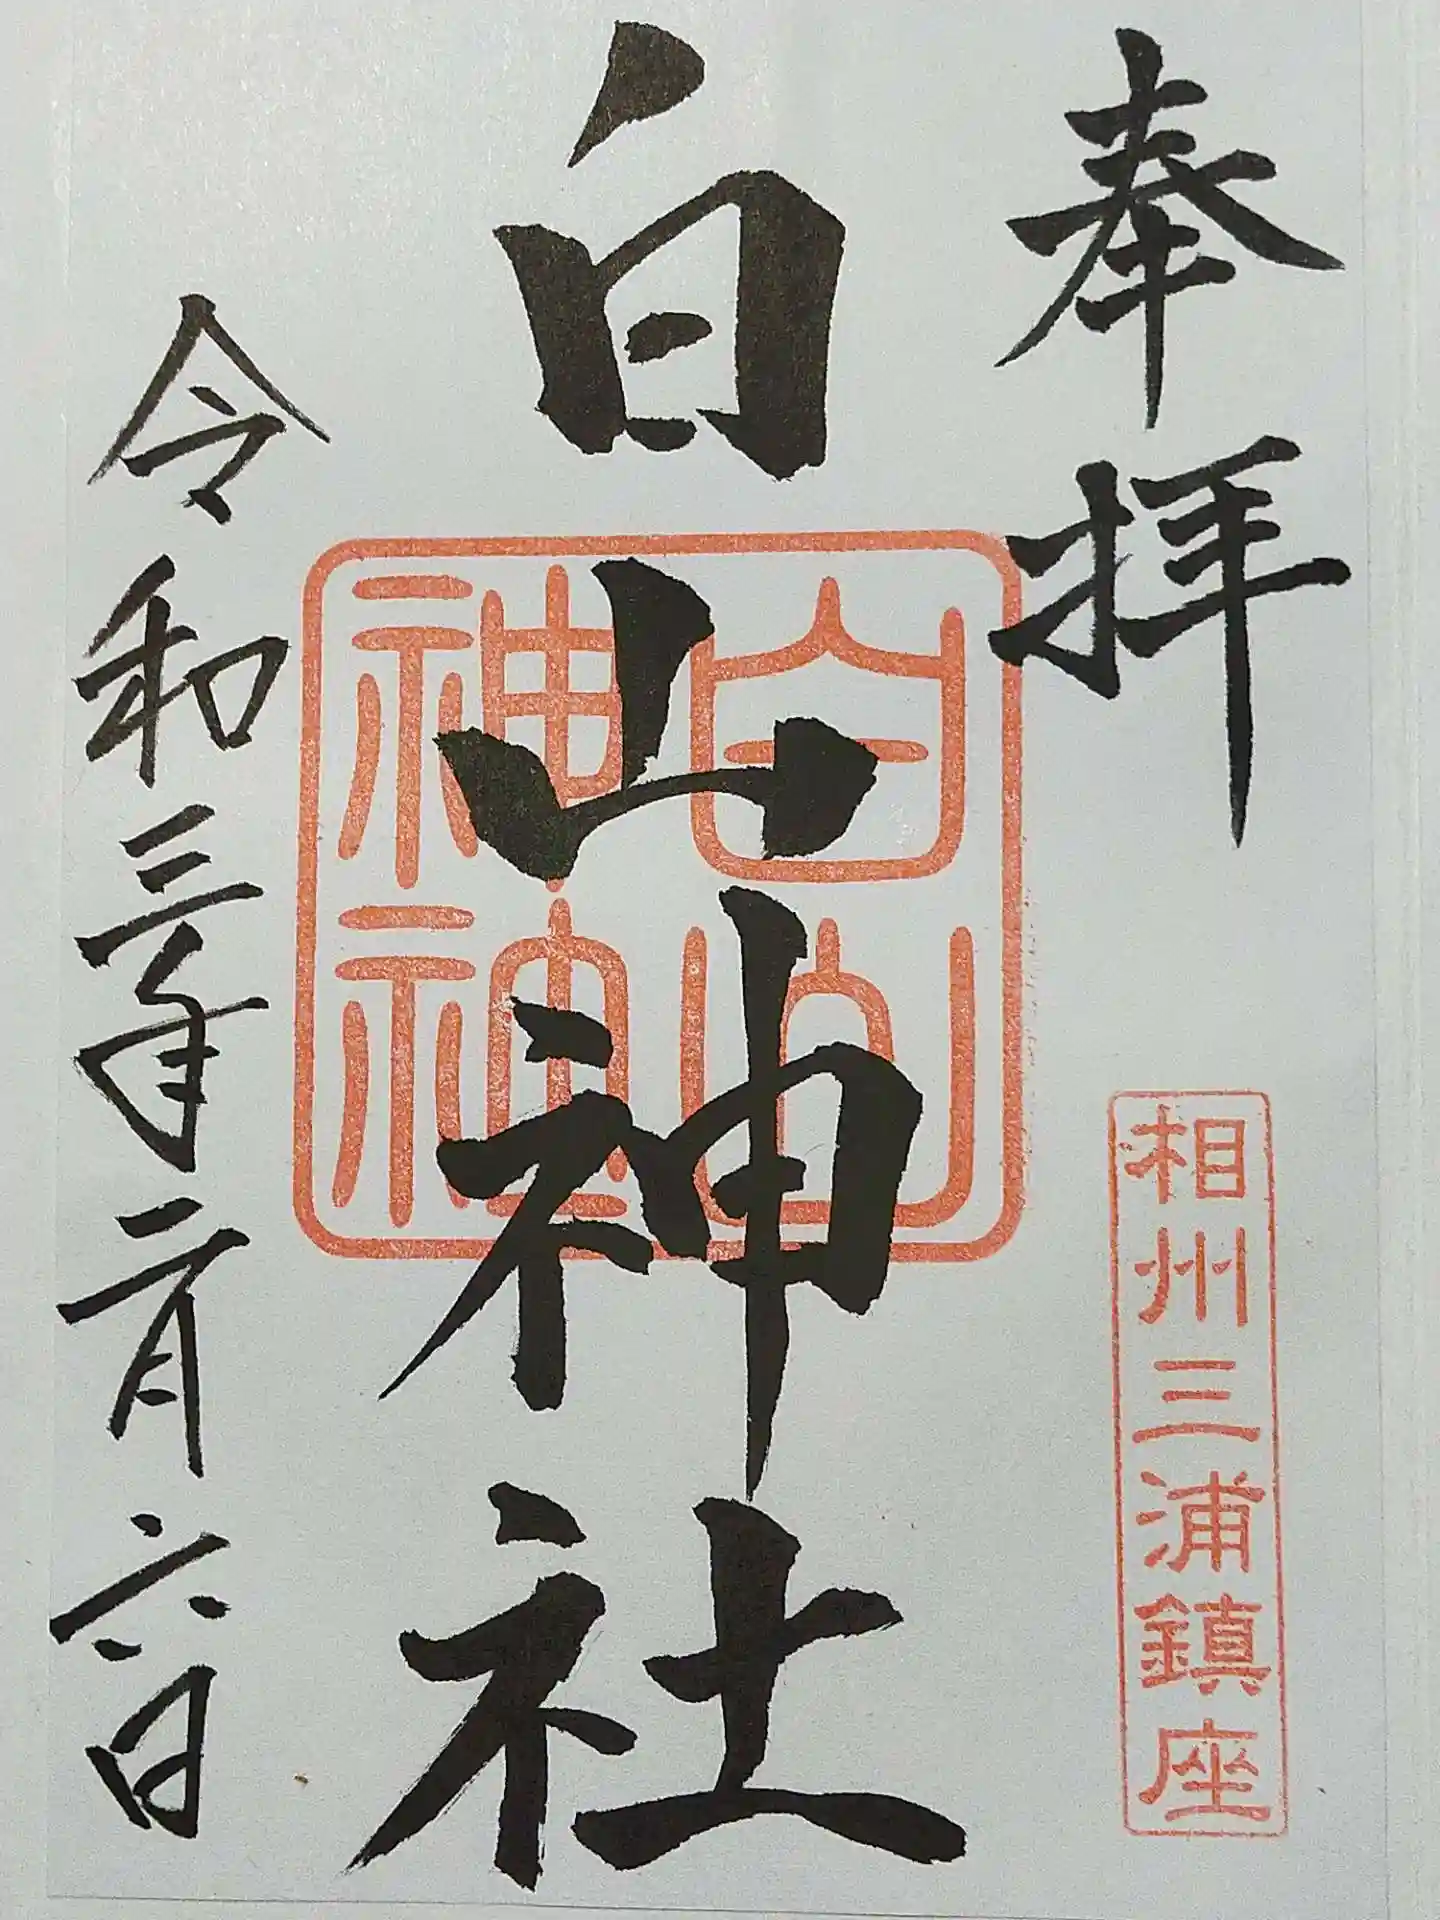 奉拝
相州三浦鎮座
白山神社
白山神神
令和三年二月六日